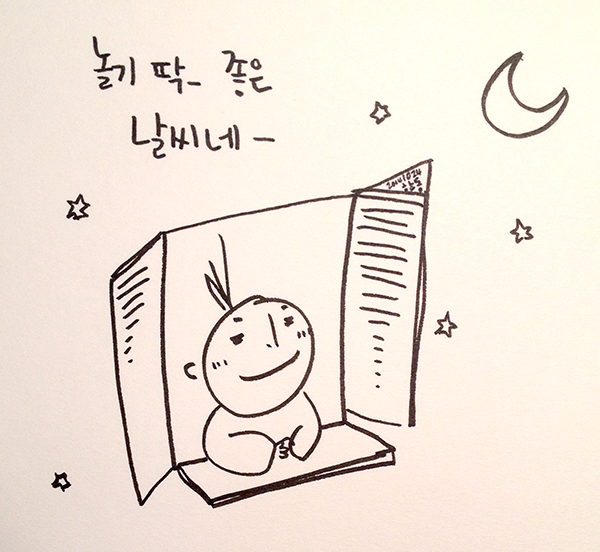 놀기 딱_ 좋은
날씨네 -
20141024